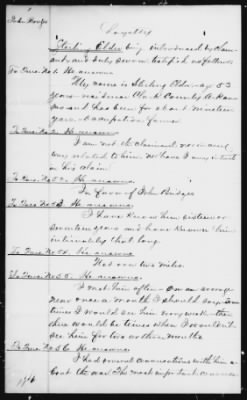 John House
Loyalty
Sterling Elder being introduced by claim-
ant and duly sworn testifies as follows
To Ques. No. 1. He answers
My name is Sterling Elder age 53
years residence County Arkan-
sas and has been for about nineteen
years - occupation farmer
To Ques. No. 2. He answers
I am not the claimant nor in and
way related to him nor have I any interest
in his claim
To Ques. No. 52. He answers
In favor of John Bridges
To Ques. No. 53. He answers
I have known him sixteen or
seventeen years and have known him
intimately that long
To Ques. No. 54. He answers
Not over two miles
To Ques. No. 55. He answers
I met him often - on an average
near once a month I should say some
times I would see him every week - then
there would be times when I wouldn't
see him for two or three months
To Ques. No. 56. He answers
I had several conversations with him a-
bout the war. The most important